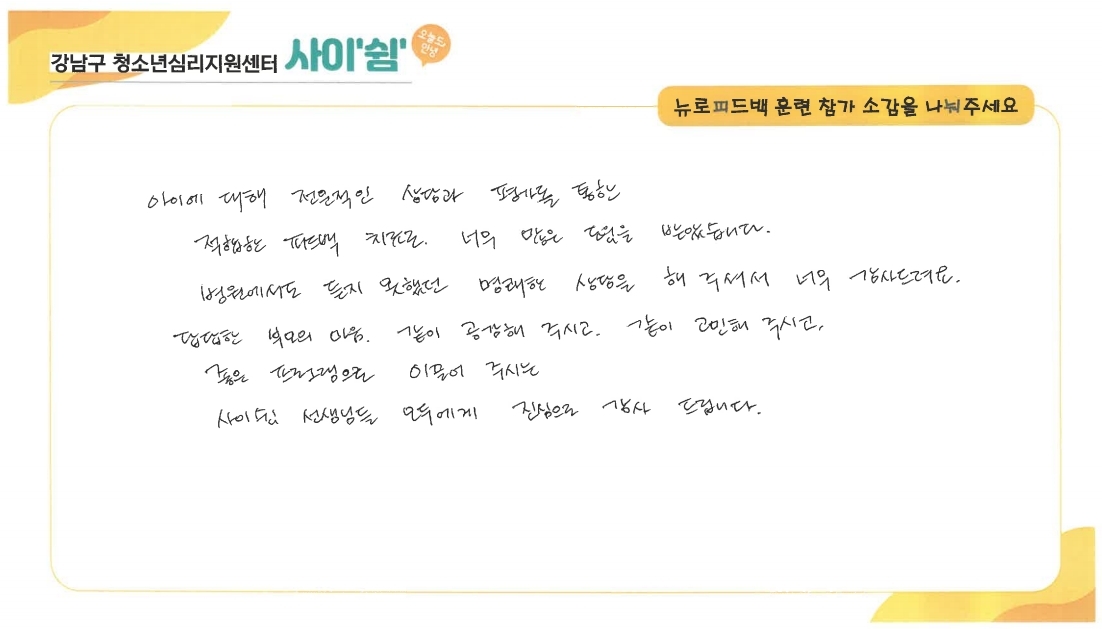 강남구 청소년심리지원센터 사이'쉼'
오늘도
안녕
뉴로피드백 훈련 참가 소감을 나눠주세요
아이에 대해 전문적인 상담과 평가를 통한
적합한 피드백 치료로. 너무 많은 도움을 받았습니다.
병원에서도 듣지 못했던 명쾌한 상담을 해 주셔서 너무 감사드려요.
답답한 부모의 마음. 같이 공감해 주시고. 같이 고민해 주시고,
좋은 프로그램으로 이끌어 주시는
사이쉼 선생님들 모두에게 진심으로 감사 드립니다.